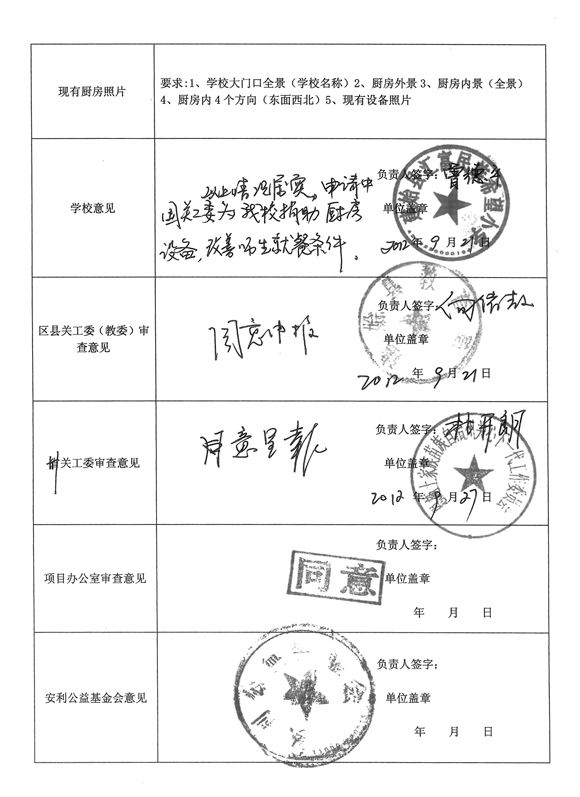 现有厨房照片
要求:1、学校大门口全景（学校名称）2、厨房外景 3、厨房内景（全景）
4、厨房内 4 个方向（东面西北）5、现有设备照片
学校意见
以上情况属实，申请中
国关工委为我校捐助厨房
设备，改善师生就餐条件。
负责人签字：
单位盖章
2012 年 9 月 21 日
区县关工委（教委）审
查意见
同意申报
负责人签字：
单位盖章
2012 年 9 月 21 日
州关工委审查意见
同意呈报
负责人签字：
单位盖章
2012 年 9 月 27 日
项目办公室审查意见
同意
负责人签字：
单位盖章
年 月 日
安利公益基金会意见
负责人签字：
单位盖章
年 月 日